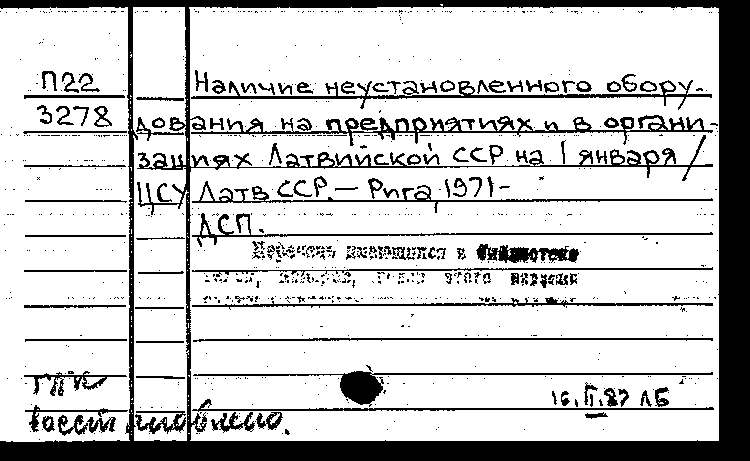 П22
3278
Наличие неустановленного обору-
дования на предприятиях и в органи-
зациях Латвийской ССР на 1 января /
ЦСУ Латв ССР. — Рига, 1971-
ДСП.
Перечень имеющихся в библиотеке
этого издания
16.II.87 ЛБ